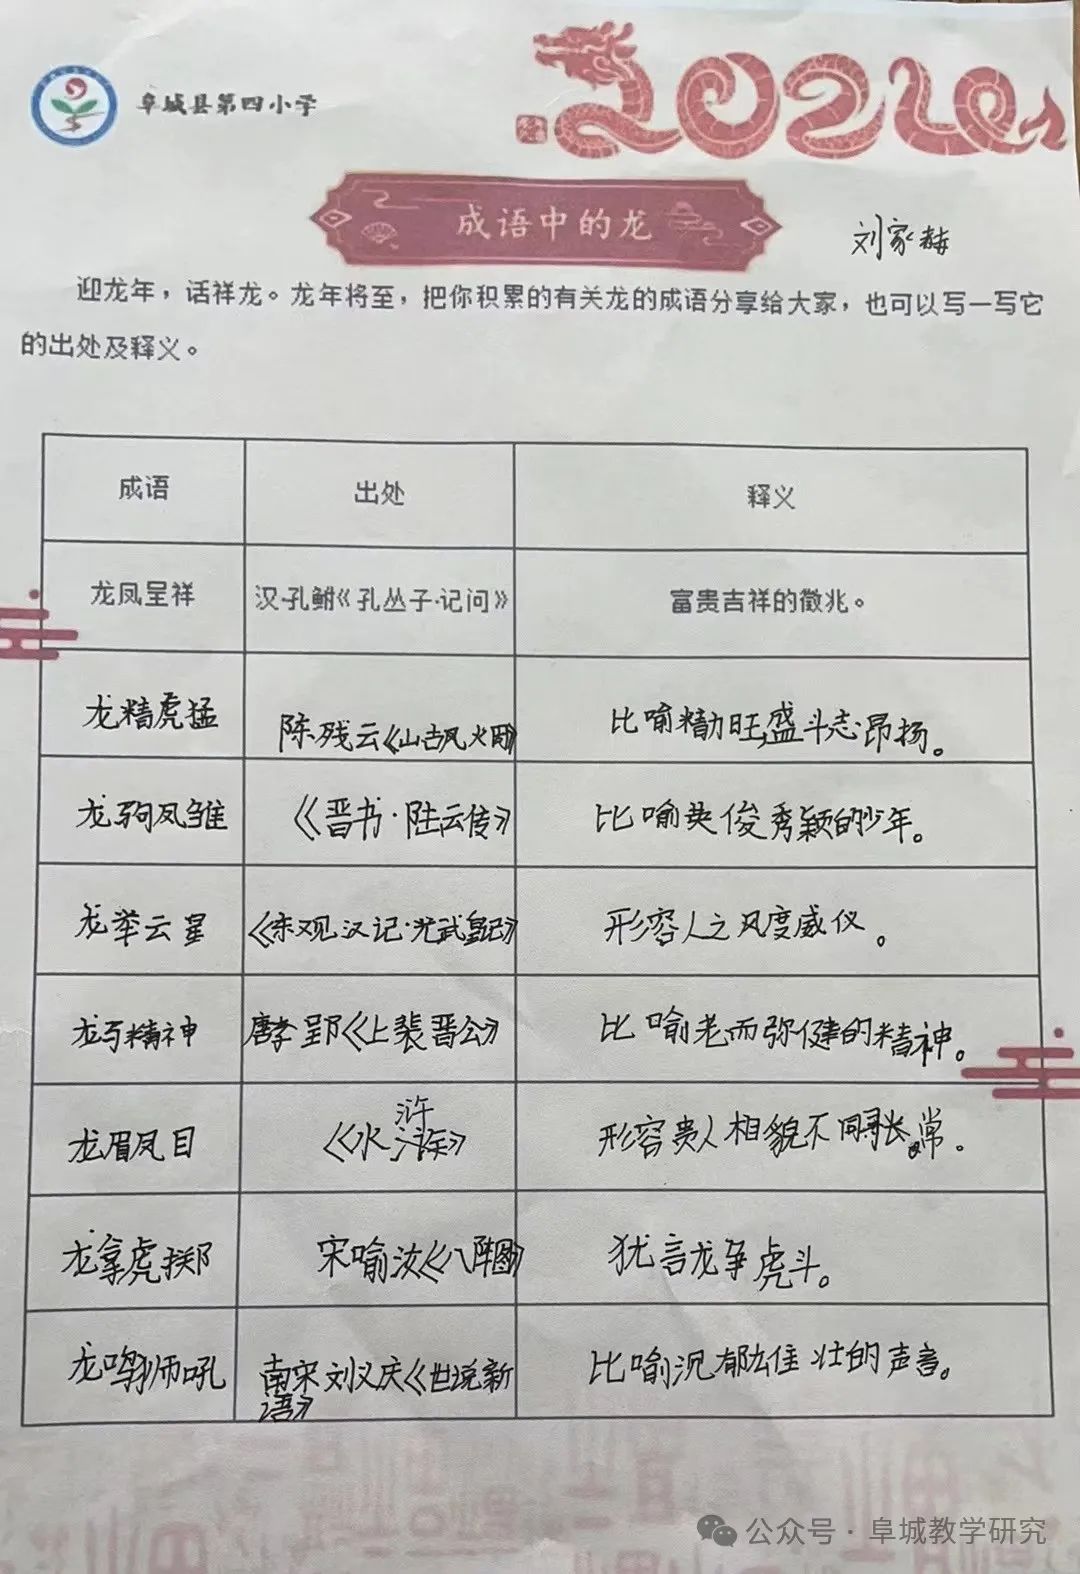 阜城县第四小学
2024
成语中的龙
刘家赫
迎龙年，话祥龙。龙年将至，把你积累的有关龙的成语分享给大家，也可以写一写它
的出处及释义。
成语 出处 释义
龙凤呈祥 汉·孔鲋《孔丛子·记问》 富贵吉祥的徵兆。
龙精虎猛 陈残云《山古风火》 比喻精力旺盛,斗志昂扬。
龙驹凤雏 《晋书·陆云传》 比喻英俊秀颖的少年。
龙举云星 《东观汉记·光武皇记》 形容人之风度威仪。
龙马精神 唐李郢《上裴晋公》 比喻老而弥健的精神。
龙眉凤目 《水浒》 形容贵人相貌不同寻常。
龙拿虎掷 宋喻汝《八阵图》 犹言龙争虎斗。
龙鸣狮吼 南宋刘义庆《世说新
语》 比喻沉郁雄壮的声音。
公众号·阜城教学研究